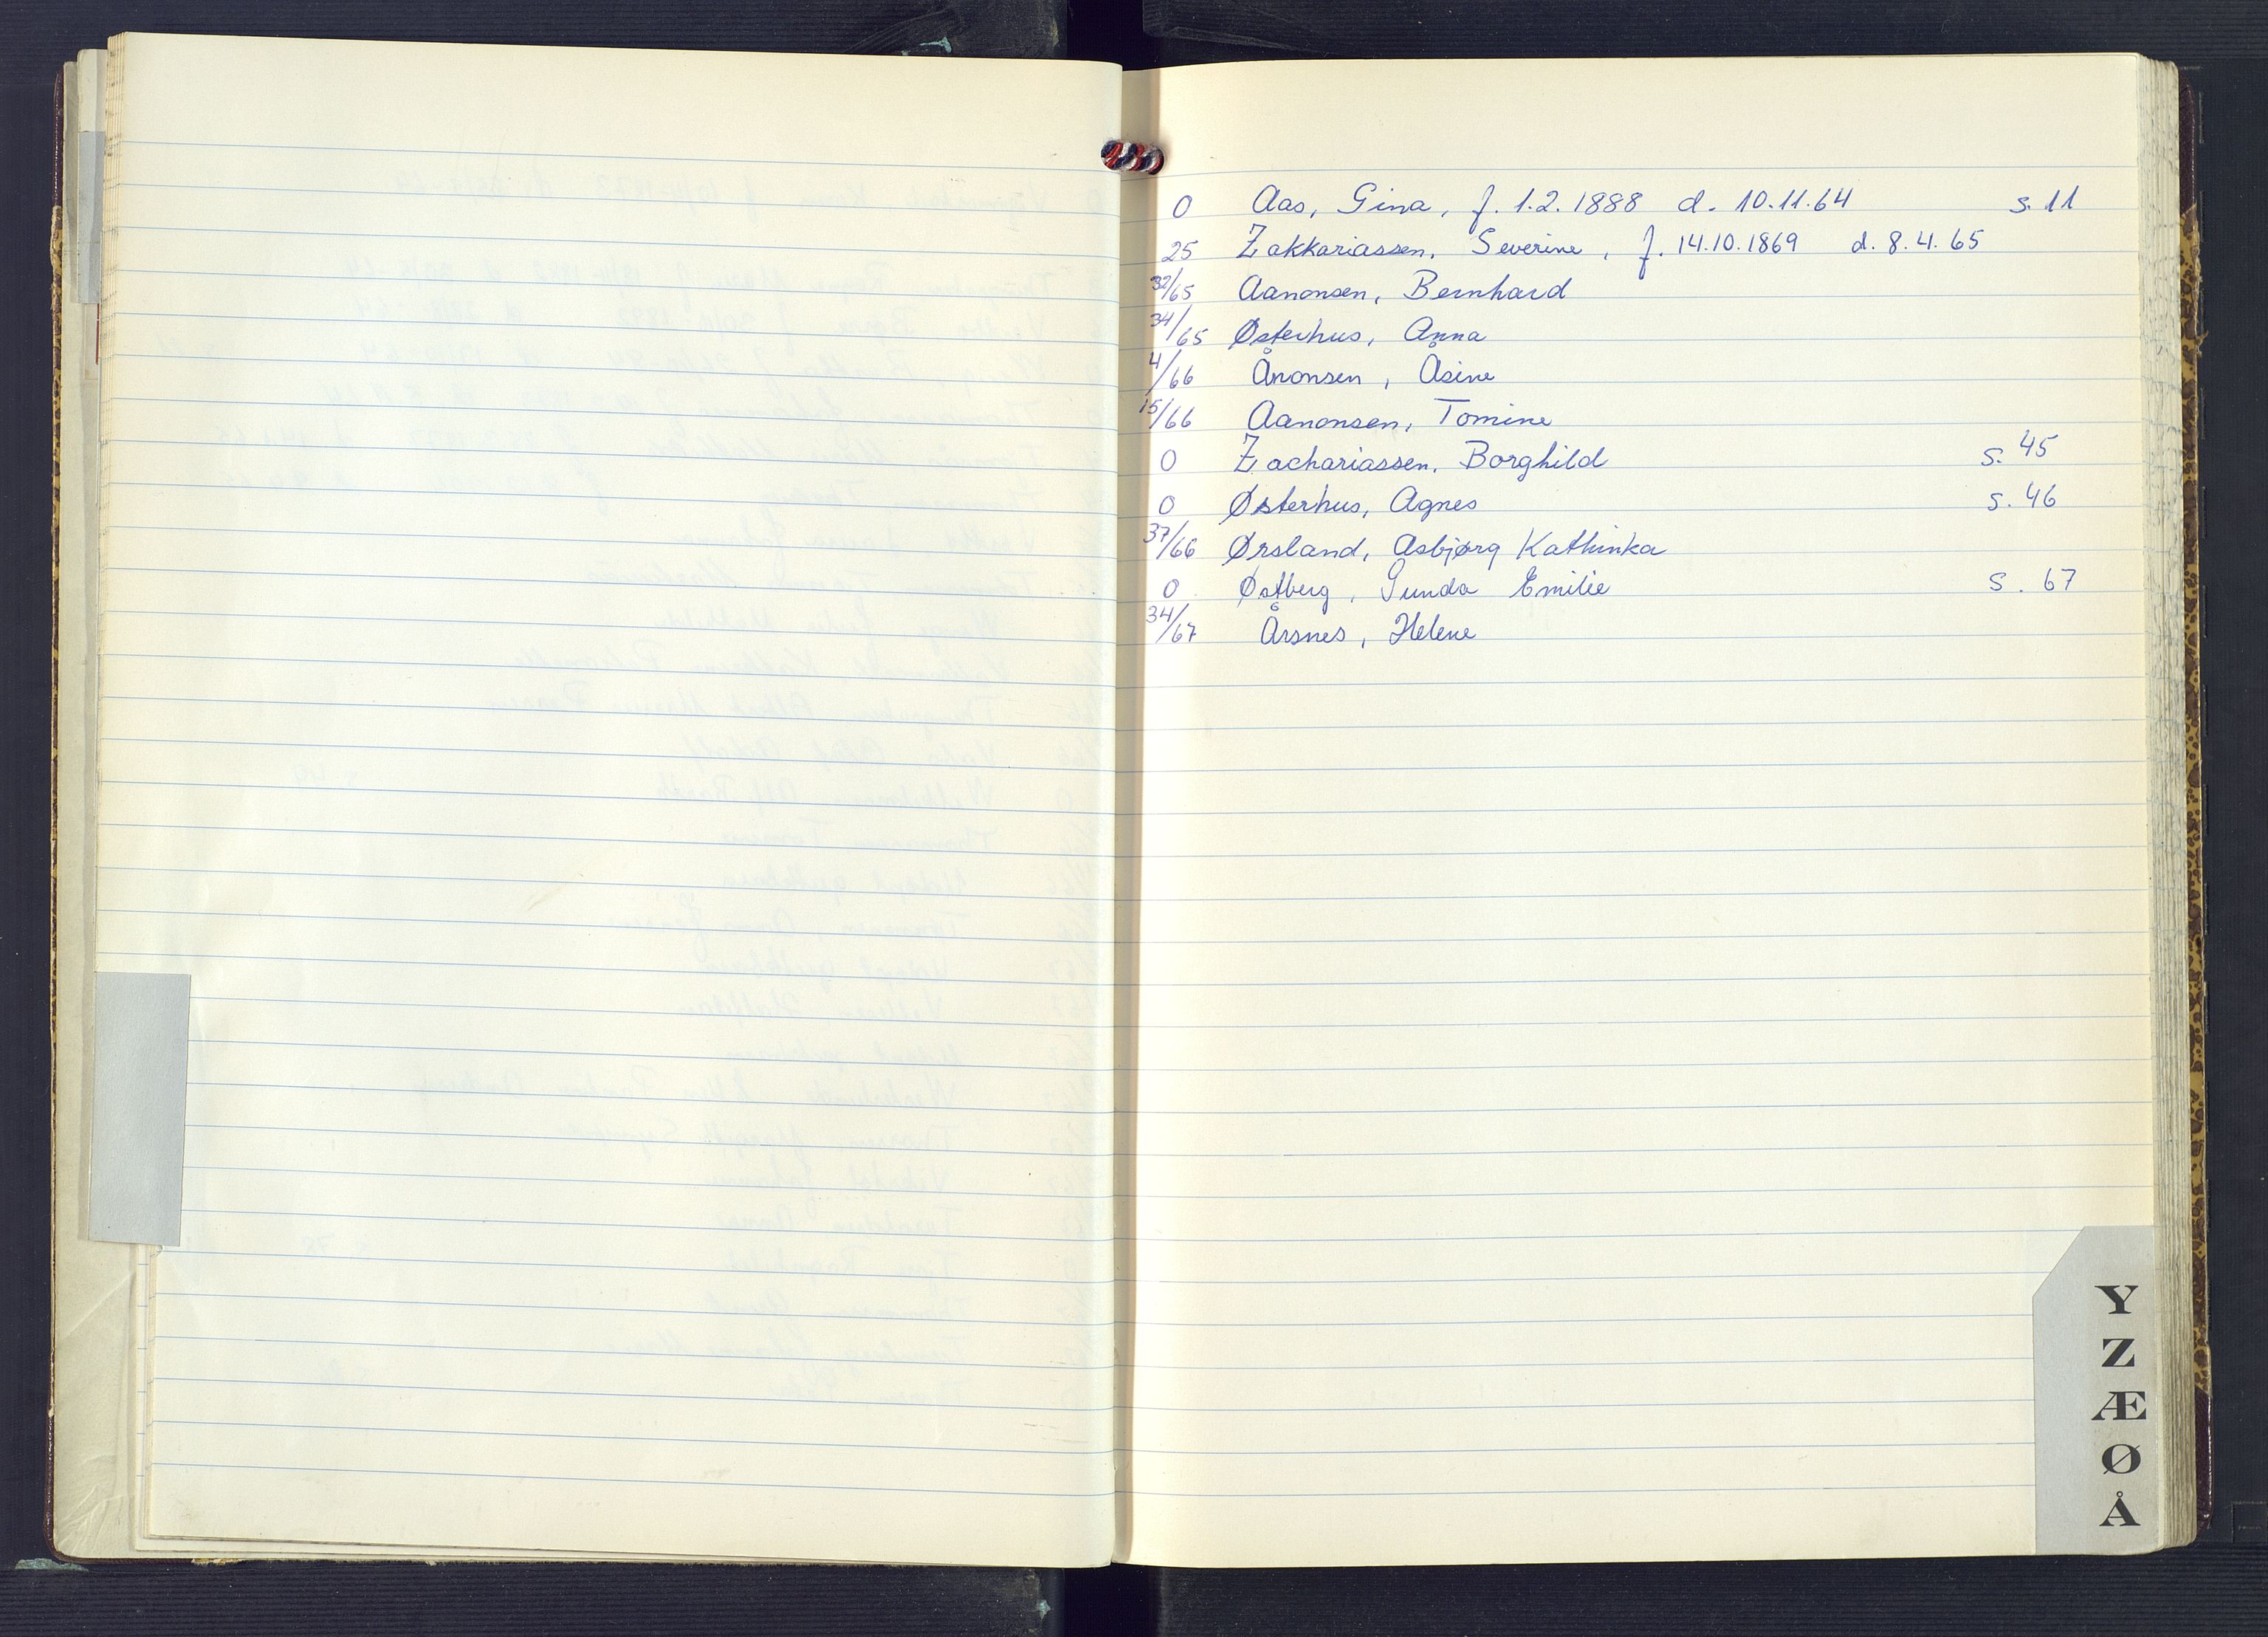 0 Aas, Gina, f. 1.2.1888 d. 10.11.64 s. 11
25 Zakkariassen, Severine, f. 14.10.1869 d. 8.4.65
32/65 Aanonsen, Bernhard
34/65 Østerhus, Anna
4/66 Ånonsen, Åsine
15/66 Aanonsen, Tomine
0 Zachariassen, Borghild s. 45
0 Østerhus, Agnes s. 46
37/66 Ørsland, Asbjørg Kathinka
0 Østberg, Gunda Emilie s. 67
34/67 Årsnes, Helene
Y
Z
Æ
Ø
Å